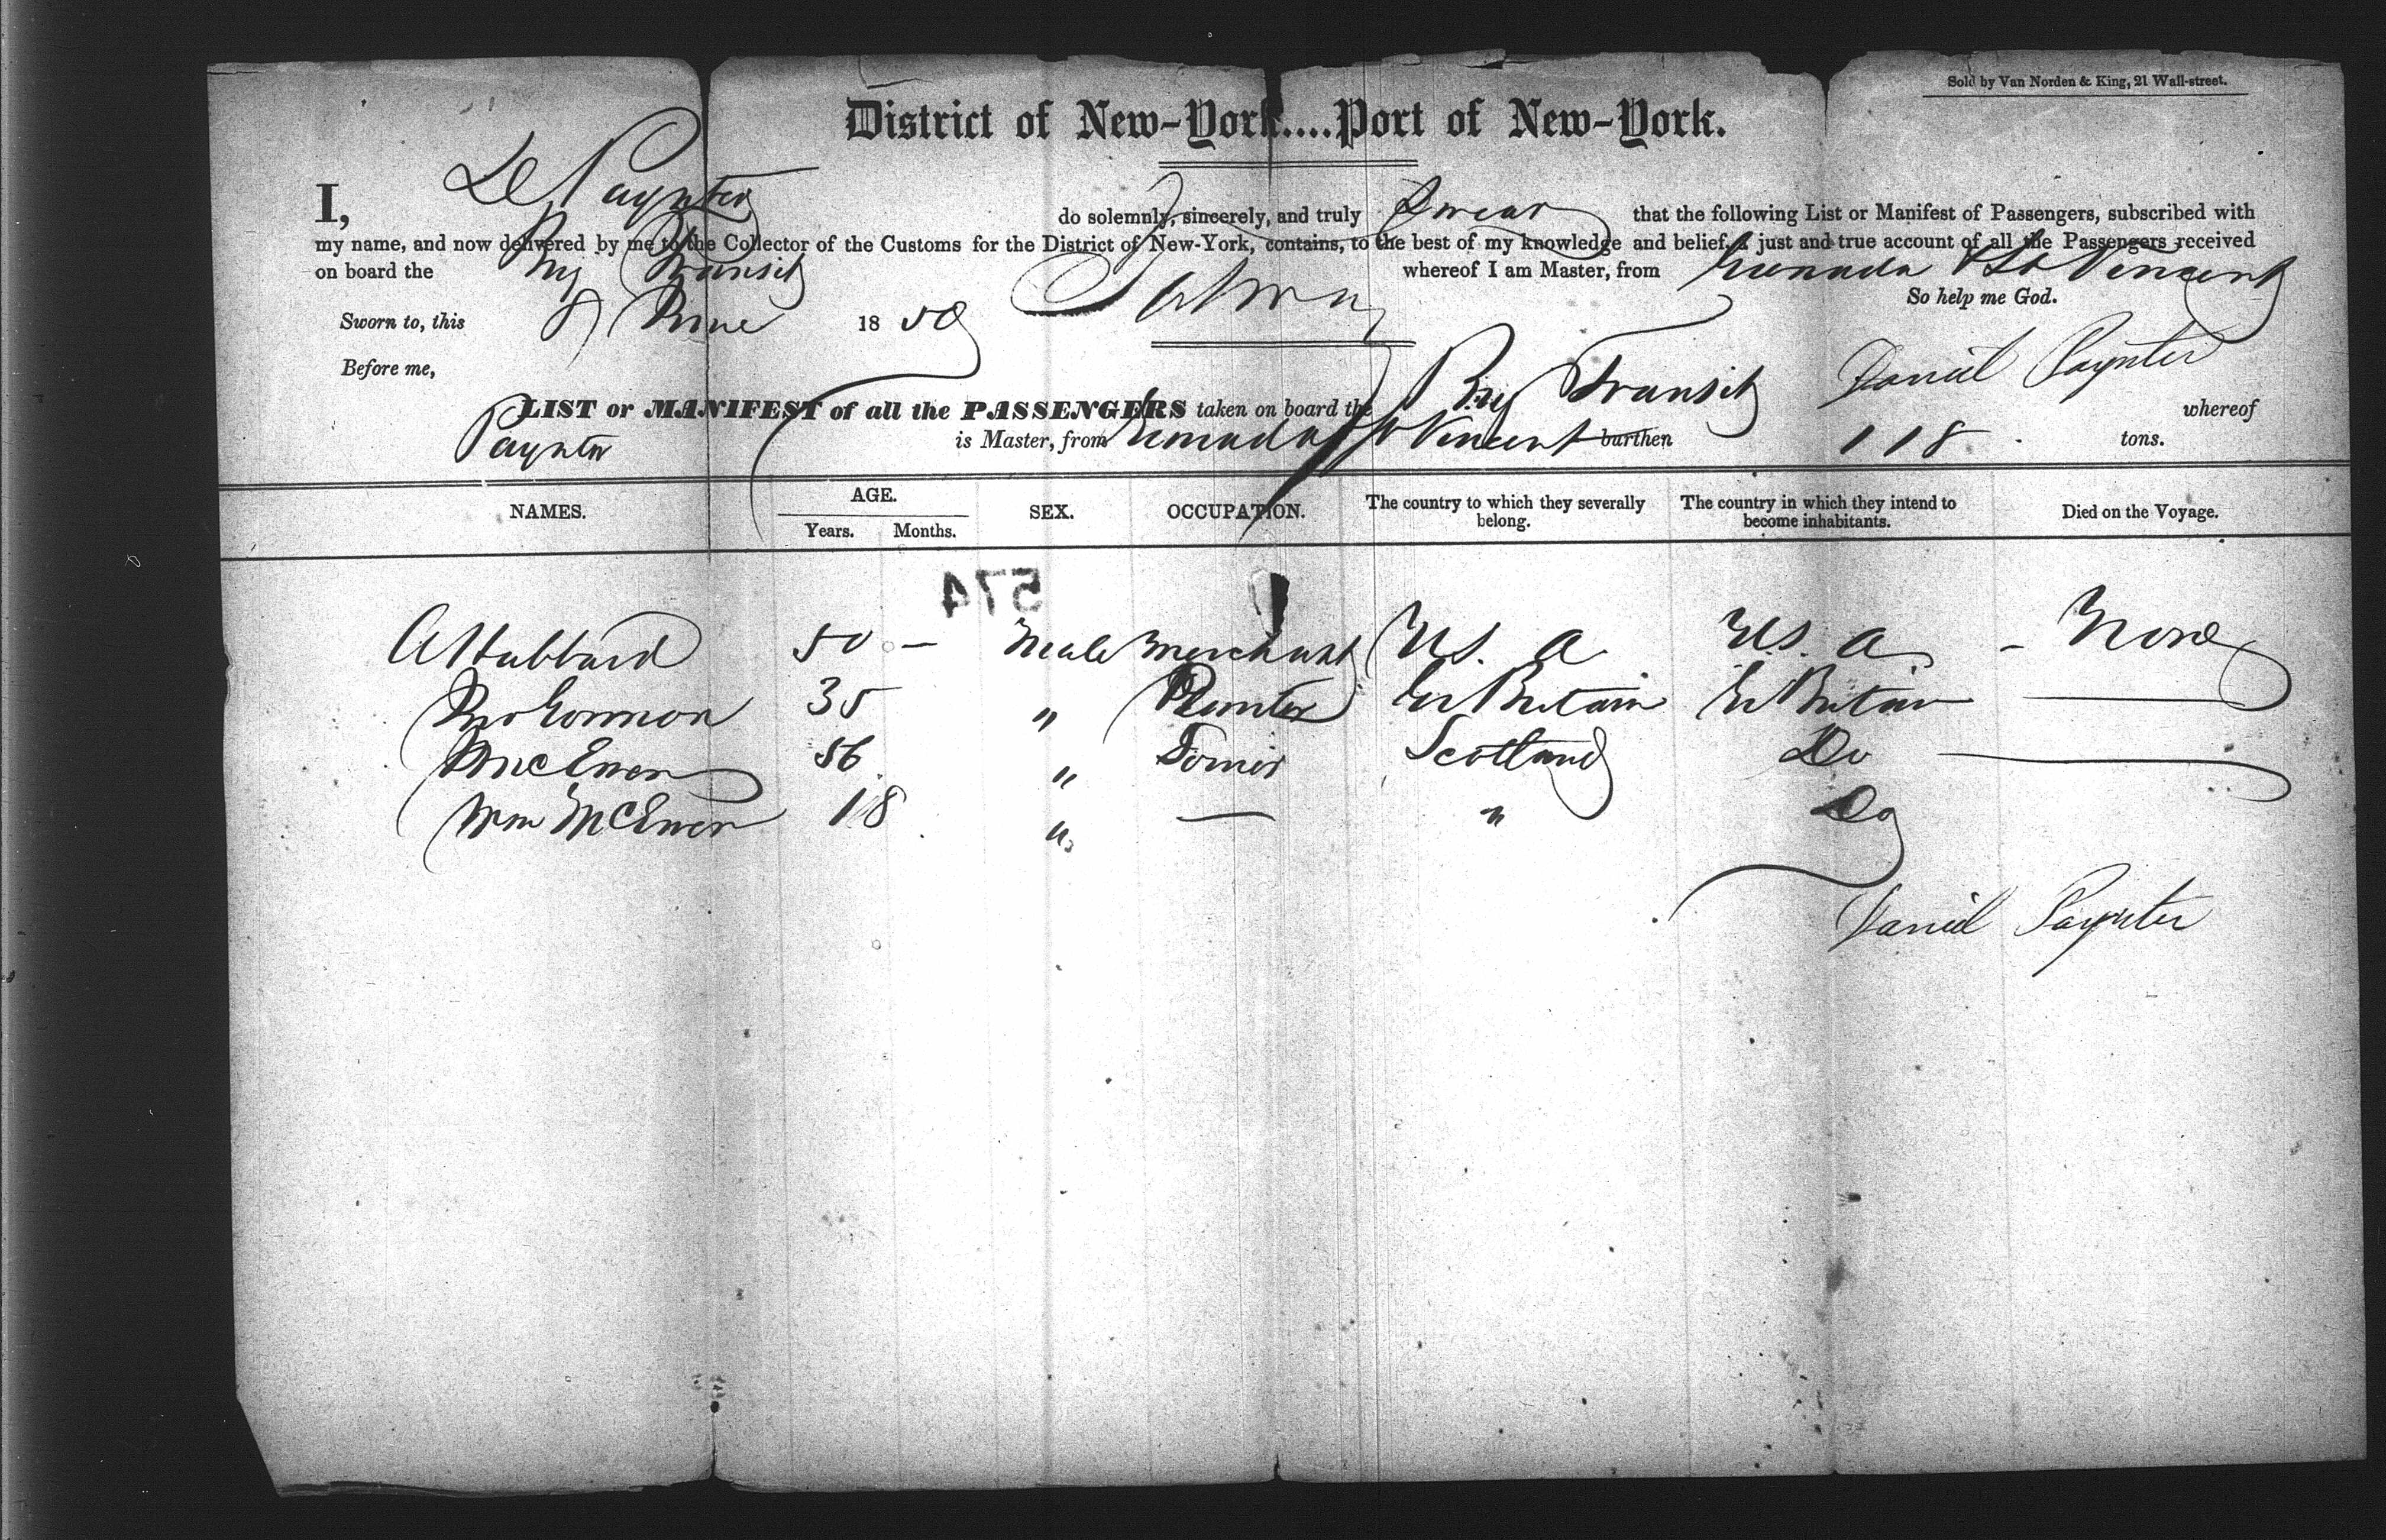 Sold by Van Norden & King, 21 Wall-street.
District of New-York....Port of New-York.
I, D Paynter do solemnly, sincerely, and truly Swear that the following List or Manifest of Passengers, subscribed with
my name, and now delivered by me to the Collector of the Customs for the District of New-York, contains, to the best of my knowledge and belief, a just and true account of all the Passengers received
on board the Brig Transit whereof I am Master, from Grenada & St Vincent
So help me God.
Sworn to, this 8 June 1850
Before me, Daniel Paynter
LIST or MANIFEST of all the PASSENGERS taken on board the Brig Transit whereof
Paynter is Master, from Grenada & St Vincent burthen 118 tons.
NAMES. AGE. Years. Months. SEX. OCCUPATION. The country to which they severally belong. The country in which they intend to become inhabitants. Died on the Voyage.
574
A Hubbard 50 — Male Merchant U.S. A U.S. A. - None
35 " Planter Gr Britain Gr Britain
McEwen 56 " Scotland Do
Wm McEwen 18 " — " Do
Daniel Paynter